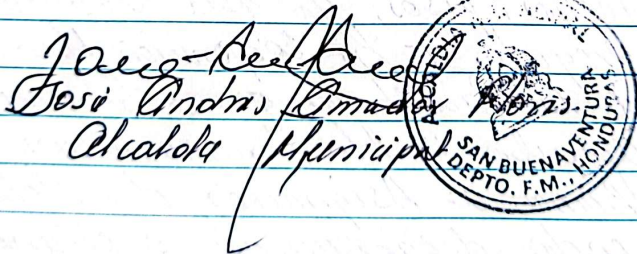 José Andres Amador
Alcalde Municipal
ALCALDIA MUNICIPAL
SAN BUENAVENTURA
DEPTO. F.M., HONDURAS